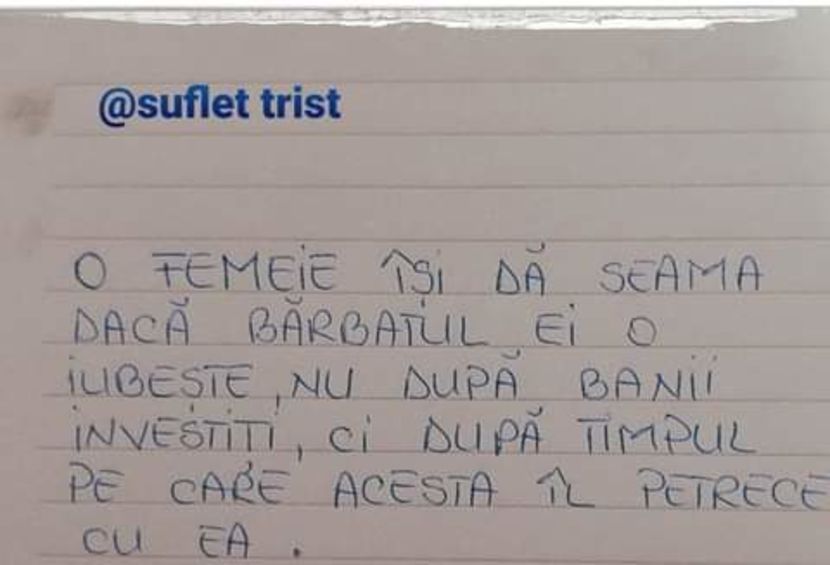 @suflet trist
O FEMEIE ÎȘI DĂ SEAMA
DACĂ BĂRBATUL EI O
IUBEȘTE, NU DUPĂ BANII
INVESTIȚI, CI DUPĂ TIMPUL
PE CARE ACESTA ÎL PETRECE
CU EA.